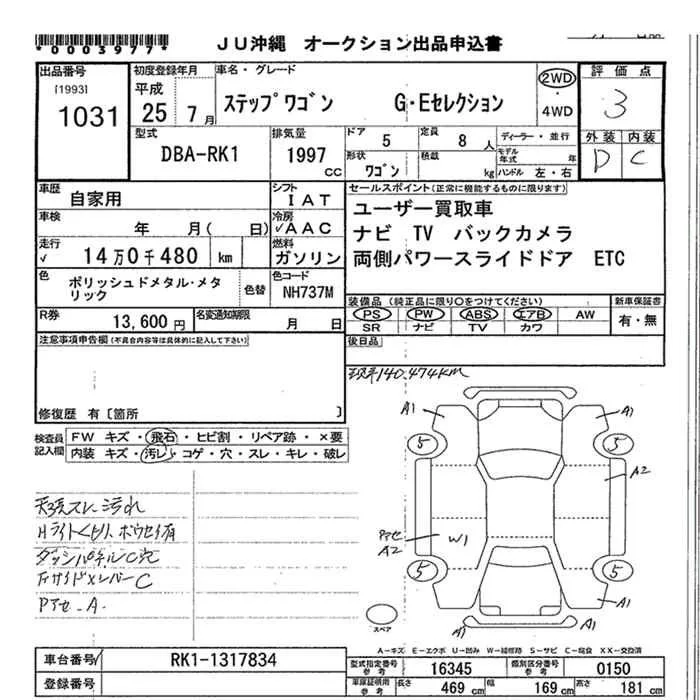 *0003977*
JU沖縄 オークション出品申込書
出品番号
[1993]
1031
初度登録年月
平成
25 7月
車名・グレード
ステップワゴン G・Eセレクション
2WD
・
4WD
評価点
3
外装 内装
D C
型式
DBA-RK1
排気量
1997
CC
ドア
5
定員
8人
形状
ワゴン
積載
kg
ディーラー・並行
モデル年式 年
ハンドル 左・右
車歴
自家用
シフト
IAT
車検
年 月( 日)
冷房
√AAC
走行
√
14万0千480 km
燃料
ガソリン
色
ポリッシュドメタル・メタリック
色替
色コード
NH737M
R券
13,600円
名変通知期限
月 日
セールスポイント(正常に機能するものに限ります)
ユーザー買取車
ナビ TV バックカメラ
両側パワースライドドア ETC
装備品(純正品に限り○をつけてください)
PS PW ABS エアB AW
SR ナビ TV カワ
新車保証書
有・無
後日品
注意事項申告欄(不具合内容等は具体的に記入して下さい)
修復歴 有[箇所 ]
検査員記入欄
FW キズ・飛石・ヒビ割・リペア跡・×要
内装 キズ・汚レ・コゲ・穴・スレ・キレ・破レ
天張スレ汚れ
Hライトくもり、ホウセイ有
ダッシュパネルC穴
C
Pアセ.A.
140.474KM
A1
A1
5
5
A2
Pアセ
A2
W1
5
5
A1
A1
A1
スペア
A-キズ E-エクボ U-凹み W-補修跡 S-サビ C-腐食 XX-交換済
車台番号
RK1-1317834
登録番号
型式指定番号
参考
16345
類別区分番号
参考
0150
車庫証明用
参考
長さ
469 cm
幅
169 cm
高さ
181 cm